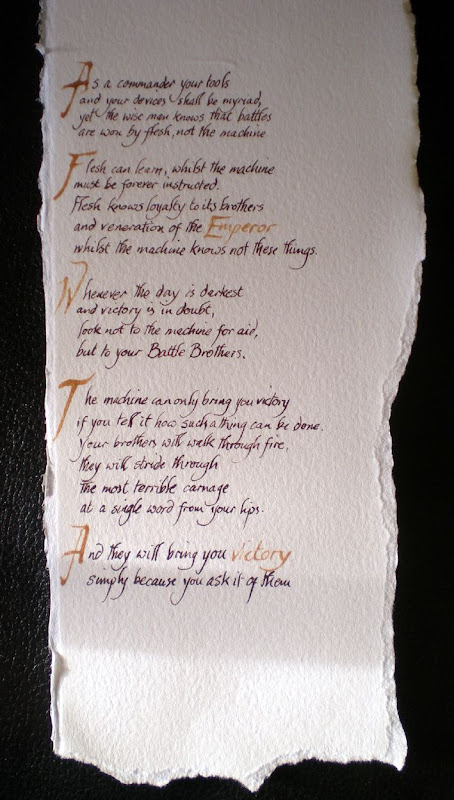 As a commander your tools
and your devices shall be myriad,
yet the wise man knows that battles
are won by flesh, not the machine.
Flesh can learn, whilst the machine
must be forever instructed.
Flesh knows loyalty to its brothers
and veneration of the Emperor
whilst the machine knows not these things.
Whenever the day is darkest
and victory is in doubt,
look not to the machine for aid,
but to your Battle Brothers.
The machine can only bring you victory
if you tell it how such a thing can be done.
Your brothers will walk through fire,
they will stride through
the most terrible carnage
at a single word from your lips.
And they will bring you victory
simply because you ask it of them